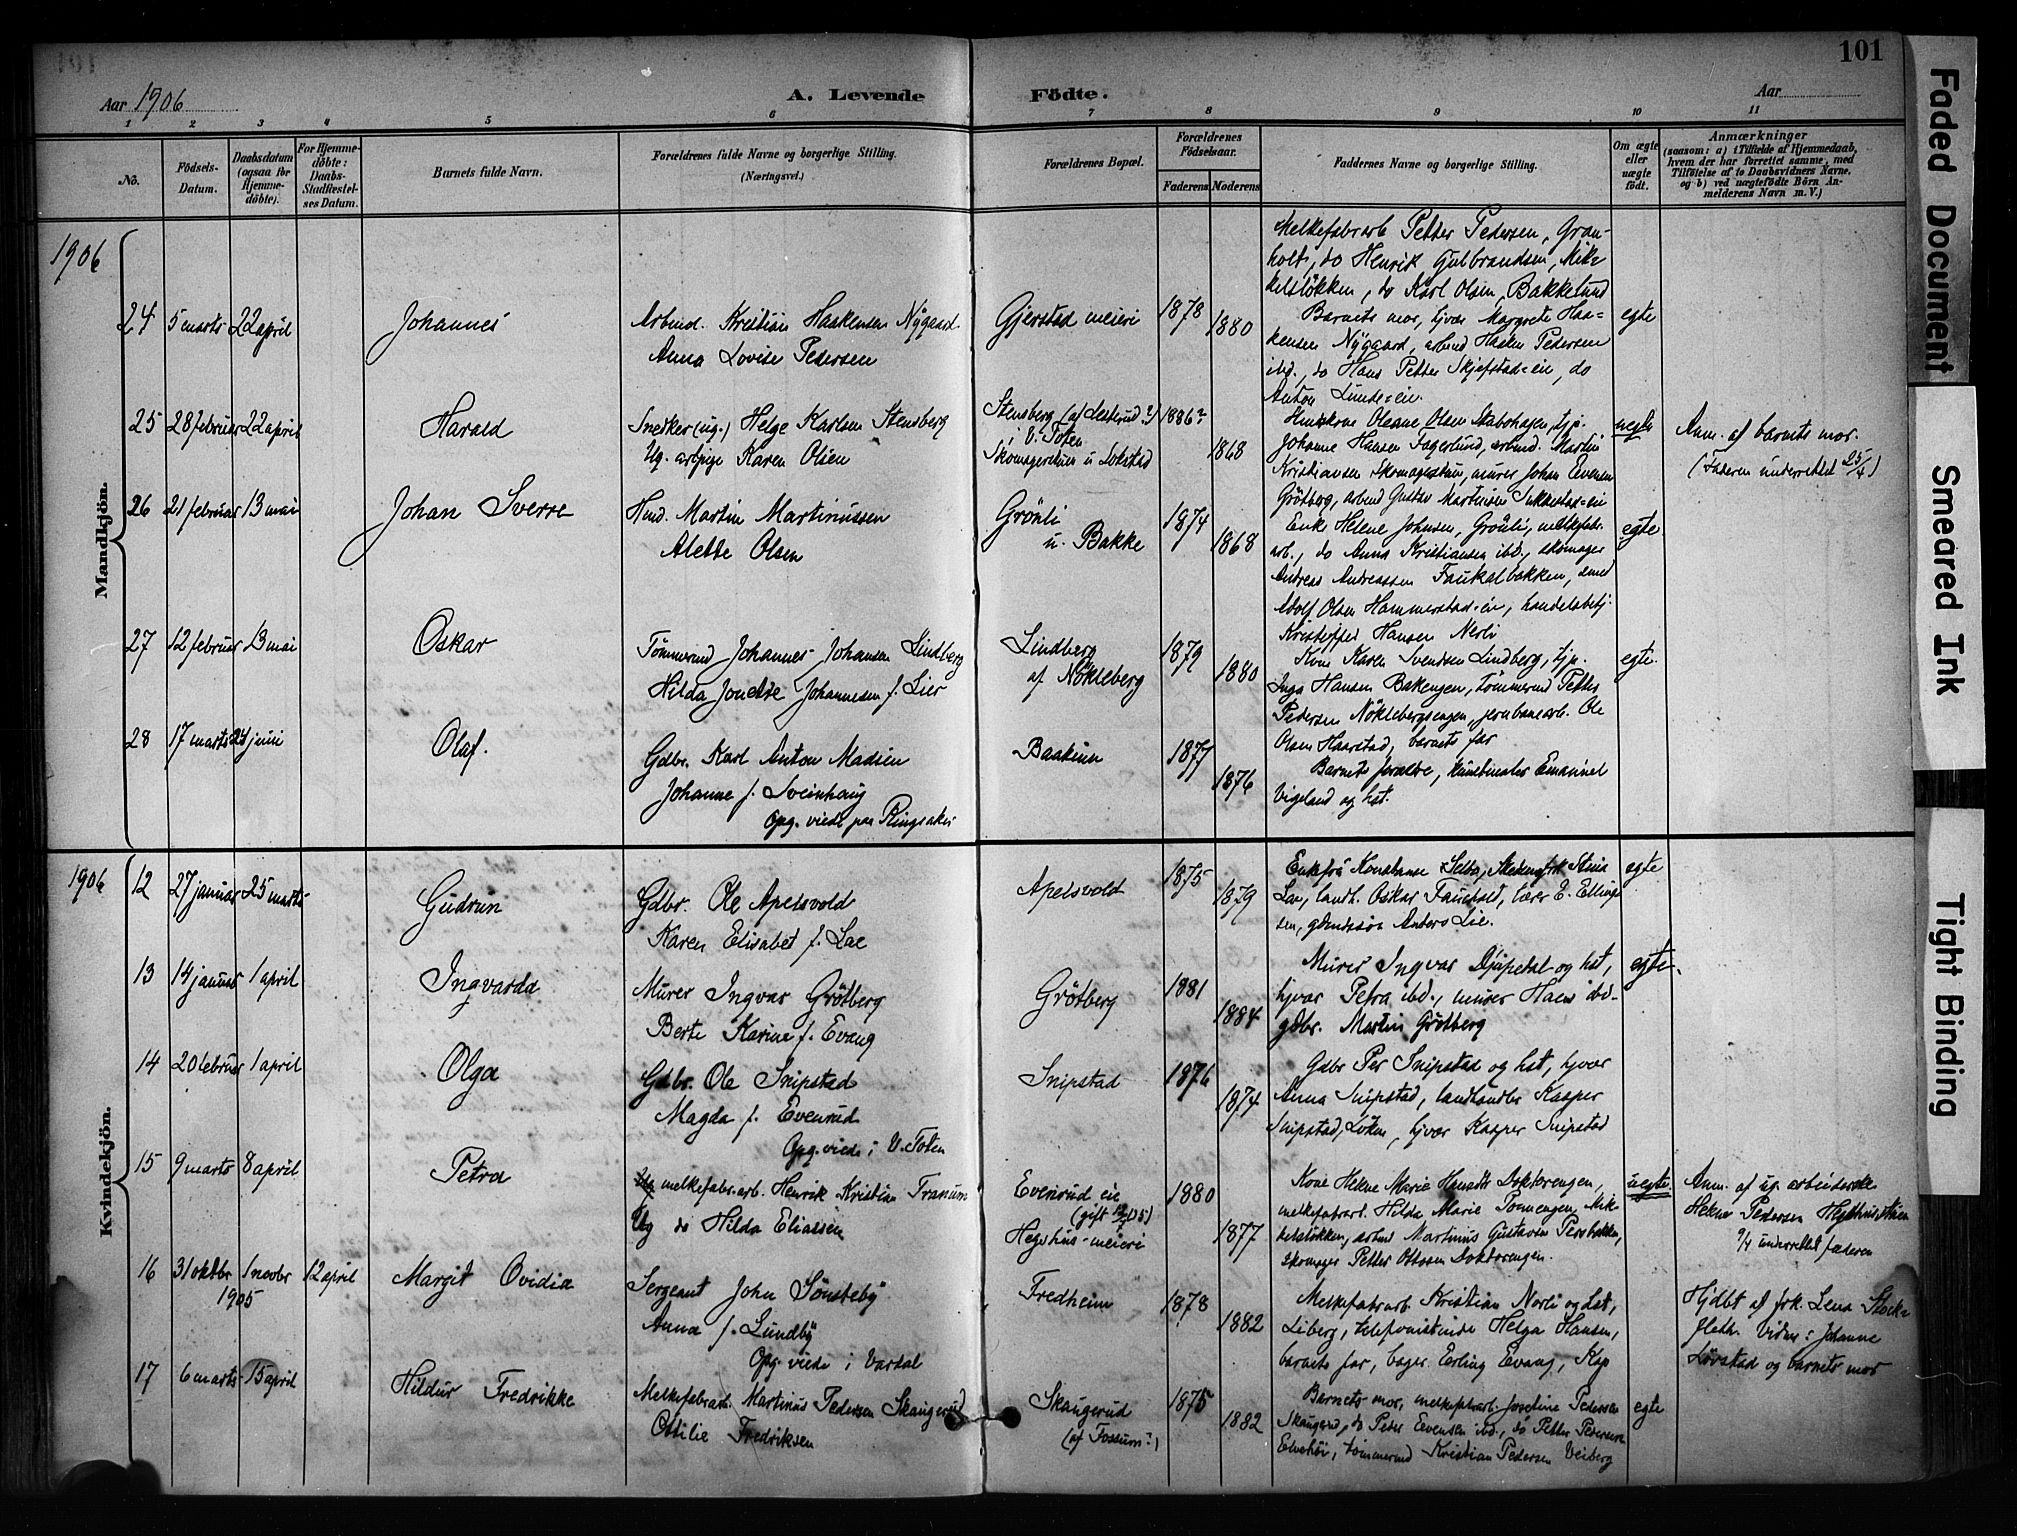 101
Aar 1906
A. Levende Födte.
Aar
1 2 3 4 5 6 7 8 9 10 11
No.
Födsels-Datum.
Daabsdatum (ogsaa for Hjemme-döbte).
For Hjemme-döbte: Daabs-Stadfæstelses Datum.
Barnets fulde Navn.
Forældrenes fulde Navne og borgerlige Stilling. (Næringsvei.)
Forældrenes Bopæl.
Forældrenes Födselsaar.
Faderens Moderens
Faddernes Navne og borgerlige Stilling.
Om ægte eller uægte födt.
Anmærkninger
(saasom: a) i Tilfælde af Hjemmedaab, hvem der har forrettet samme, med Tilföielse af to Daabsvidners Navne, og b) ved uægtefödte Börn Anmelderens Navn m. V.)
1906
Mandkjön.
24 5 marts 22 april
Johannes
Arbmd. Kristian Haakensen Nygaard
Anna Lovise Pedersen
Gjerstad meieri
1878
1880
Melkefabrarb Petter Pedersen, Gran-
holt, do Henrik Gulbrandsen, Mik-
kelsløkken, do Karl Olsen, Bakkelund
Barnets mor, tjvær Margrete Haa-
kensen Nygaard, arbmd Haaken Pedersen
ibd., do Hans Petter Skjefstad=eie, do
Anton Lunde=eie.
egte
25 28 februar 22 april
Harald
Snedker (ug.) Helge Karlsen Stensberg
Ug. arbpige Karen Olsen
Stensberg
i V. Toten
Skomagerstuen u Lokstad
1886?
1868
Oleane Olsen Skabohagen, tjp.
Johanne Hansen Fagerlund, arbmd. Martin
Kristiansen Skomagerstuen, murer Johan Evensen
Grøtberg, arbmd Gustav Martinsen
uegte
Anm. af barnets mor.
(Faderen underrettet 25/4)
26 21 februar 13 mai
Johan Sverre
Hmd. Martin Martinussen
Alette Olsen
Grönli
u. Bakke
1874
1868
Enke Helene Johnsen, Grönli, melkefabr.
arb., do Anna Kristiansen ibd., skomager
Andreas Andreassen Faukalbakken, smed
Adolf Olsen Hammerstad=eie, handelsbetj.
Kristoffer Hansen Nerli
egte
27 12 februar 13 mai
Oskar
Tömmermd Johannes Johansen Lindberg
Hilda Jonette Johannesen f. Lier
Lindberg
af Nökleberg
1879
1880
Kone Karen Svendsen Lindberg, tjp.
Inga Hansen Bakengen, tømmermd Petter
Pedersen Nöklebergsengen, jernbanearb. Ole
Olsen Haarstad, barnets far
egte.
28 17 marts 24 juni
Olaf.
Gdbr. Karl Anton Madsen
Johanne f. Sveinhaug
Opg. viede paa Ringsaker
Baakinn
1877
1876
Barnets forældre, Emanuel
Vigeland og hst.
1906
Kvindekjön.
12 27 januar 25 marts
Gudrun
Gdbr. Ole Apelsvold
Karen Elisabet f. Lae
Apelsvold
1875
1879
Enkefru Konstanse Selbo, Stina
Lae, landh. Oskar Fauchald, lærer E. Elling-
sen, gdmdssøn Anders Lie.
egte
13 14 januar 1 april
Ingvarda
Murer Ingvar Grötberg
Berte Karine f. Evang
Grötberg
1881
1884
Murer Ingvar Djupedal og hst,
tjvær Petra ibd., murer Hans ibd.
gdbr. Martin Grötberg
egte.
14 20 februar 1 april
Olga
Gdbr. Ole Snipstad
Magda f. Evenrud
Opg. viede i V. Toten
Snipstad
1876
1874
Gdbr Per Snipstad og hst, tjvær
Anna Snipstad, landhandler Kasper
Snipstad, Löken, tjvær Kasper Snipstad
15 9 marts 8 april
Petra
melkefabr.arb. Henrik Kristian Tranum
Ug do Hilda Eliassen
Evenrud eie
(gift 05)
Hegshus-meieri
1880
1877
Kone Helene Marie Doktorengen,
melkefabrarb. Hilda Marie Mik-
kelsløkken, arbmd Martinius Gustavsen
skomager Petter Ottosen Doktorengen.
uegte
Anm. af ug. arbeiderske
Helene Pedersen
9/4 underrettet faderen
16 31 oktbr 1905 1 novbr 12 april
Margit Ovidia
Sergeant John Sönsteby
Anna f. Lundby
Opg. viede i Vardal
Fredheim
1878
1882
Melkefabrarb. Kristian Norli og hst,
Liberg, telefonistinde Helga Hansen,
barnets far, bager Erling Evang, Kap
Hjdbt af frk. Lena Stock-
fleth. Vidner: Johanne
Lørstad og barnets mor
17 6 marts 15 april
Hildur Fredrikke
Melkefabrarb. Martinus Pedersen Skaugerud
Ottilie Fredriksen
Skaugerud
(af Fossum?)
1875
1882
Barnets mor, melkefabrarb. Josefine Pedersen
Skaugerud, do Peder Evensen ibd., do Petter Pedersen
Elvehöi, tömmermd Kristian Pedersen Veiberg
egte
Faded Document
Smeared Ink
Tight Binding